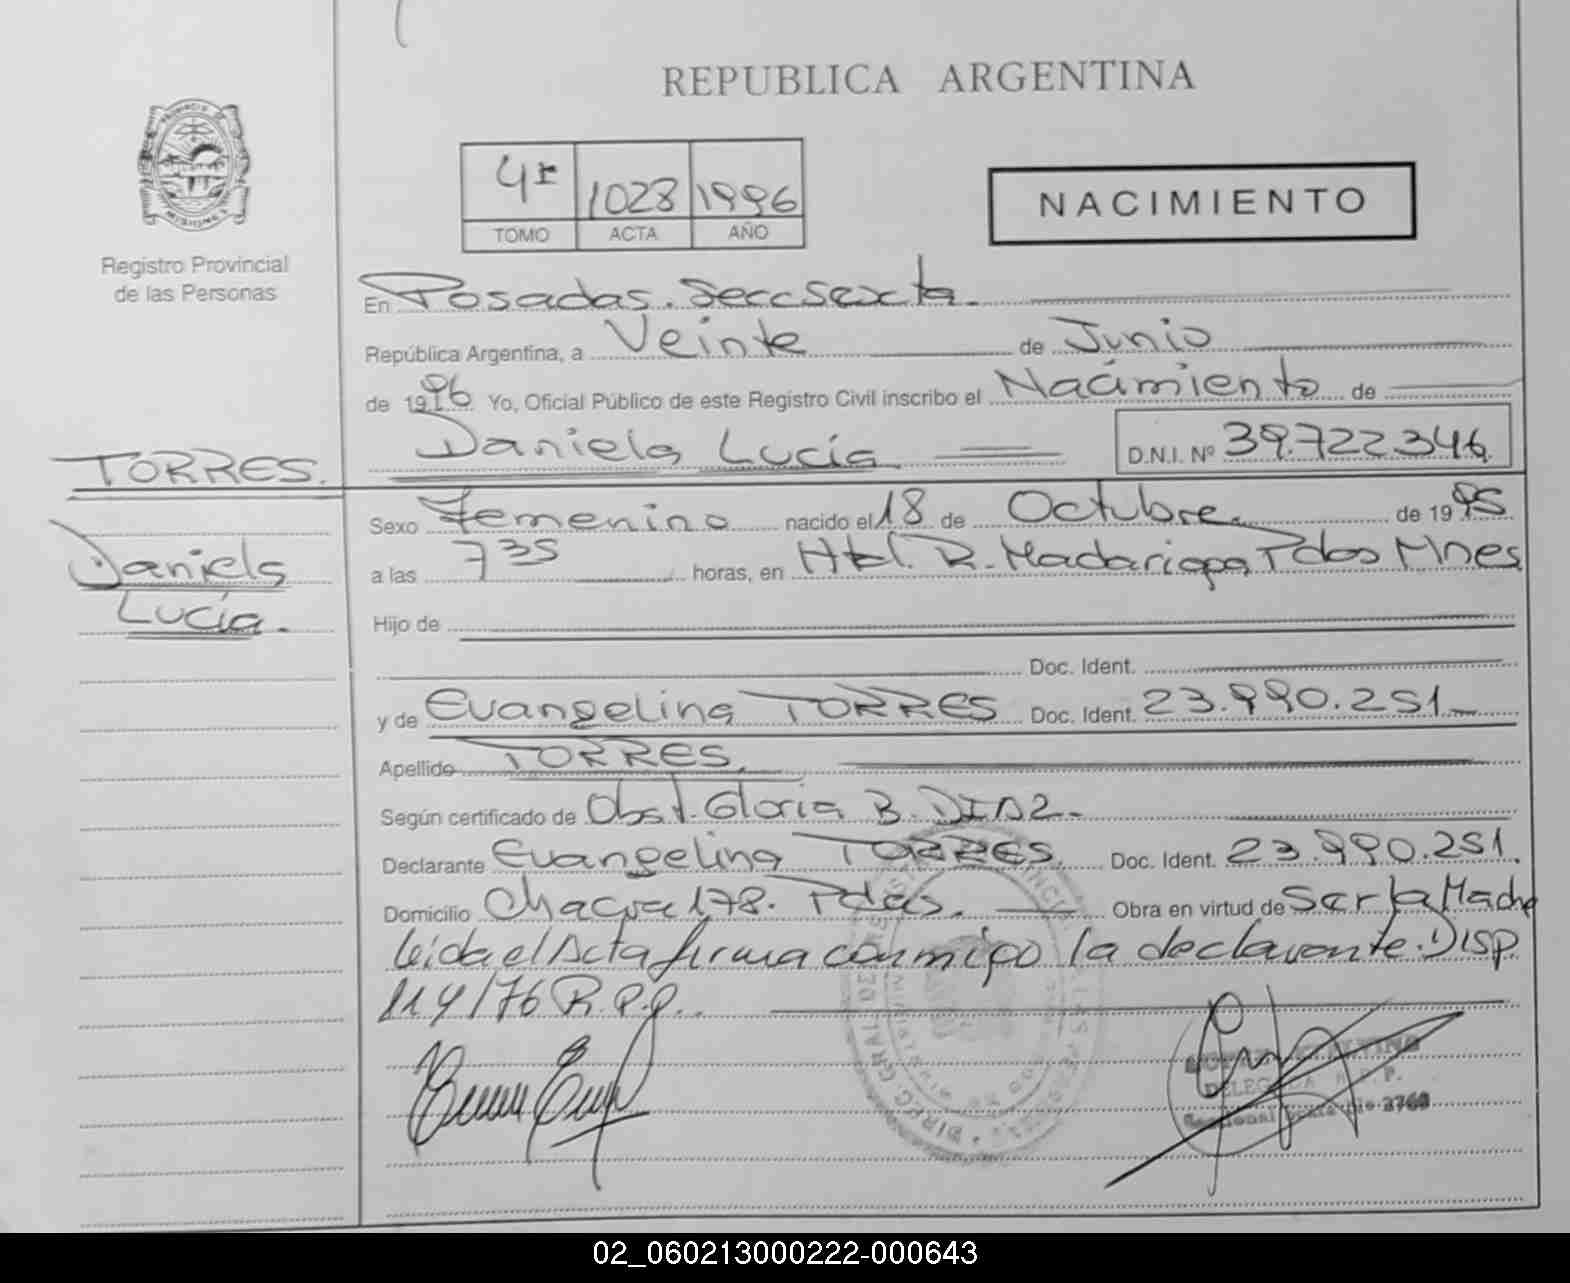 REPUBLICA ARGENTINA
PROVINCIA DE
MISIONES
Registro Provincial
de las Personas
4º 1028 1996
TOMO ACTA AÑO
NACIMIENTO
En Posadas. Secc Sexta.
República Argentina, a Veinte de Junio
de 1996 Yo, Oficial Público de este Registro Civil inscribo el Nacimiento de
Daniela Lucía D.N.I. Nº 39.722.346
TORRES.
Daniela
Lucía.
Sexo Femenino nacido el 18 de Octubre. de 1995
a las 735 horas, en Htal. R. Madariaga Pdas Mnes
Hijo de
Doc. Ident.
y de Evangelina TORRES Doc. Ident. 23.990.251
Apellido TORRES.
Según certificado de Obst. Gloria B. DIAZ.-
Declarante Evangelina TORRES. Doc. Ident. 23.990.251.
Domicilio Chacra 178. Pdas. Obra en virtud de Ser la Madre
leida el Acta firma conmigo la declarante. Disp.
114/76 R.P.P.
DELEGADA R.P.P.
02_060213000222-000643